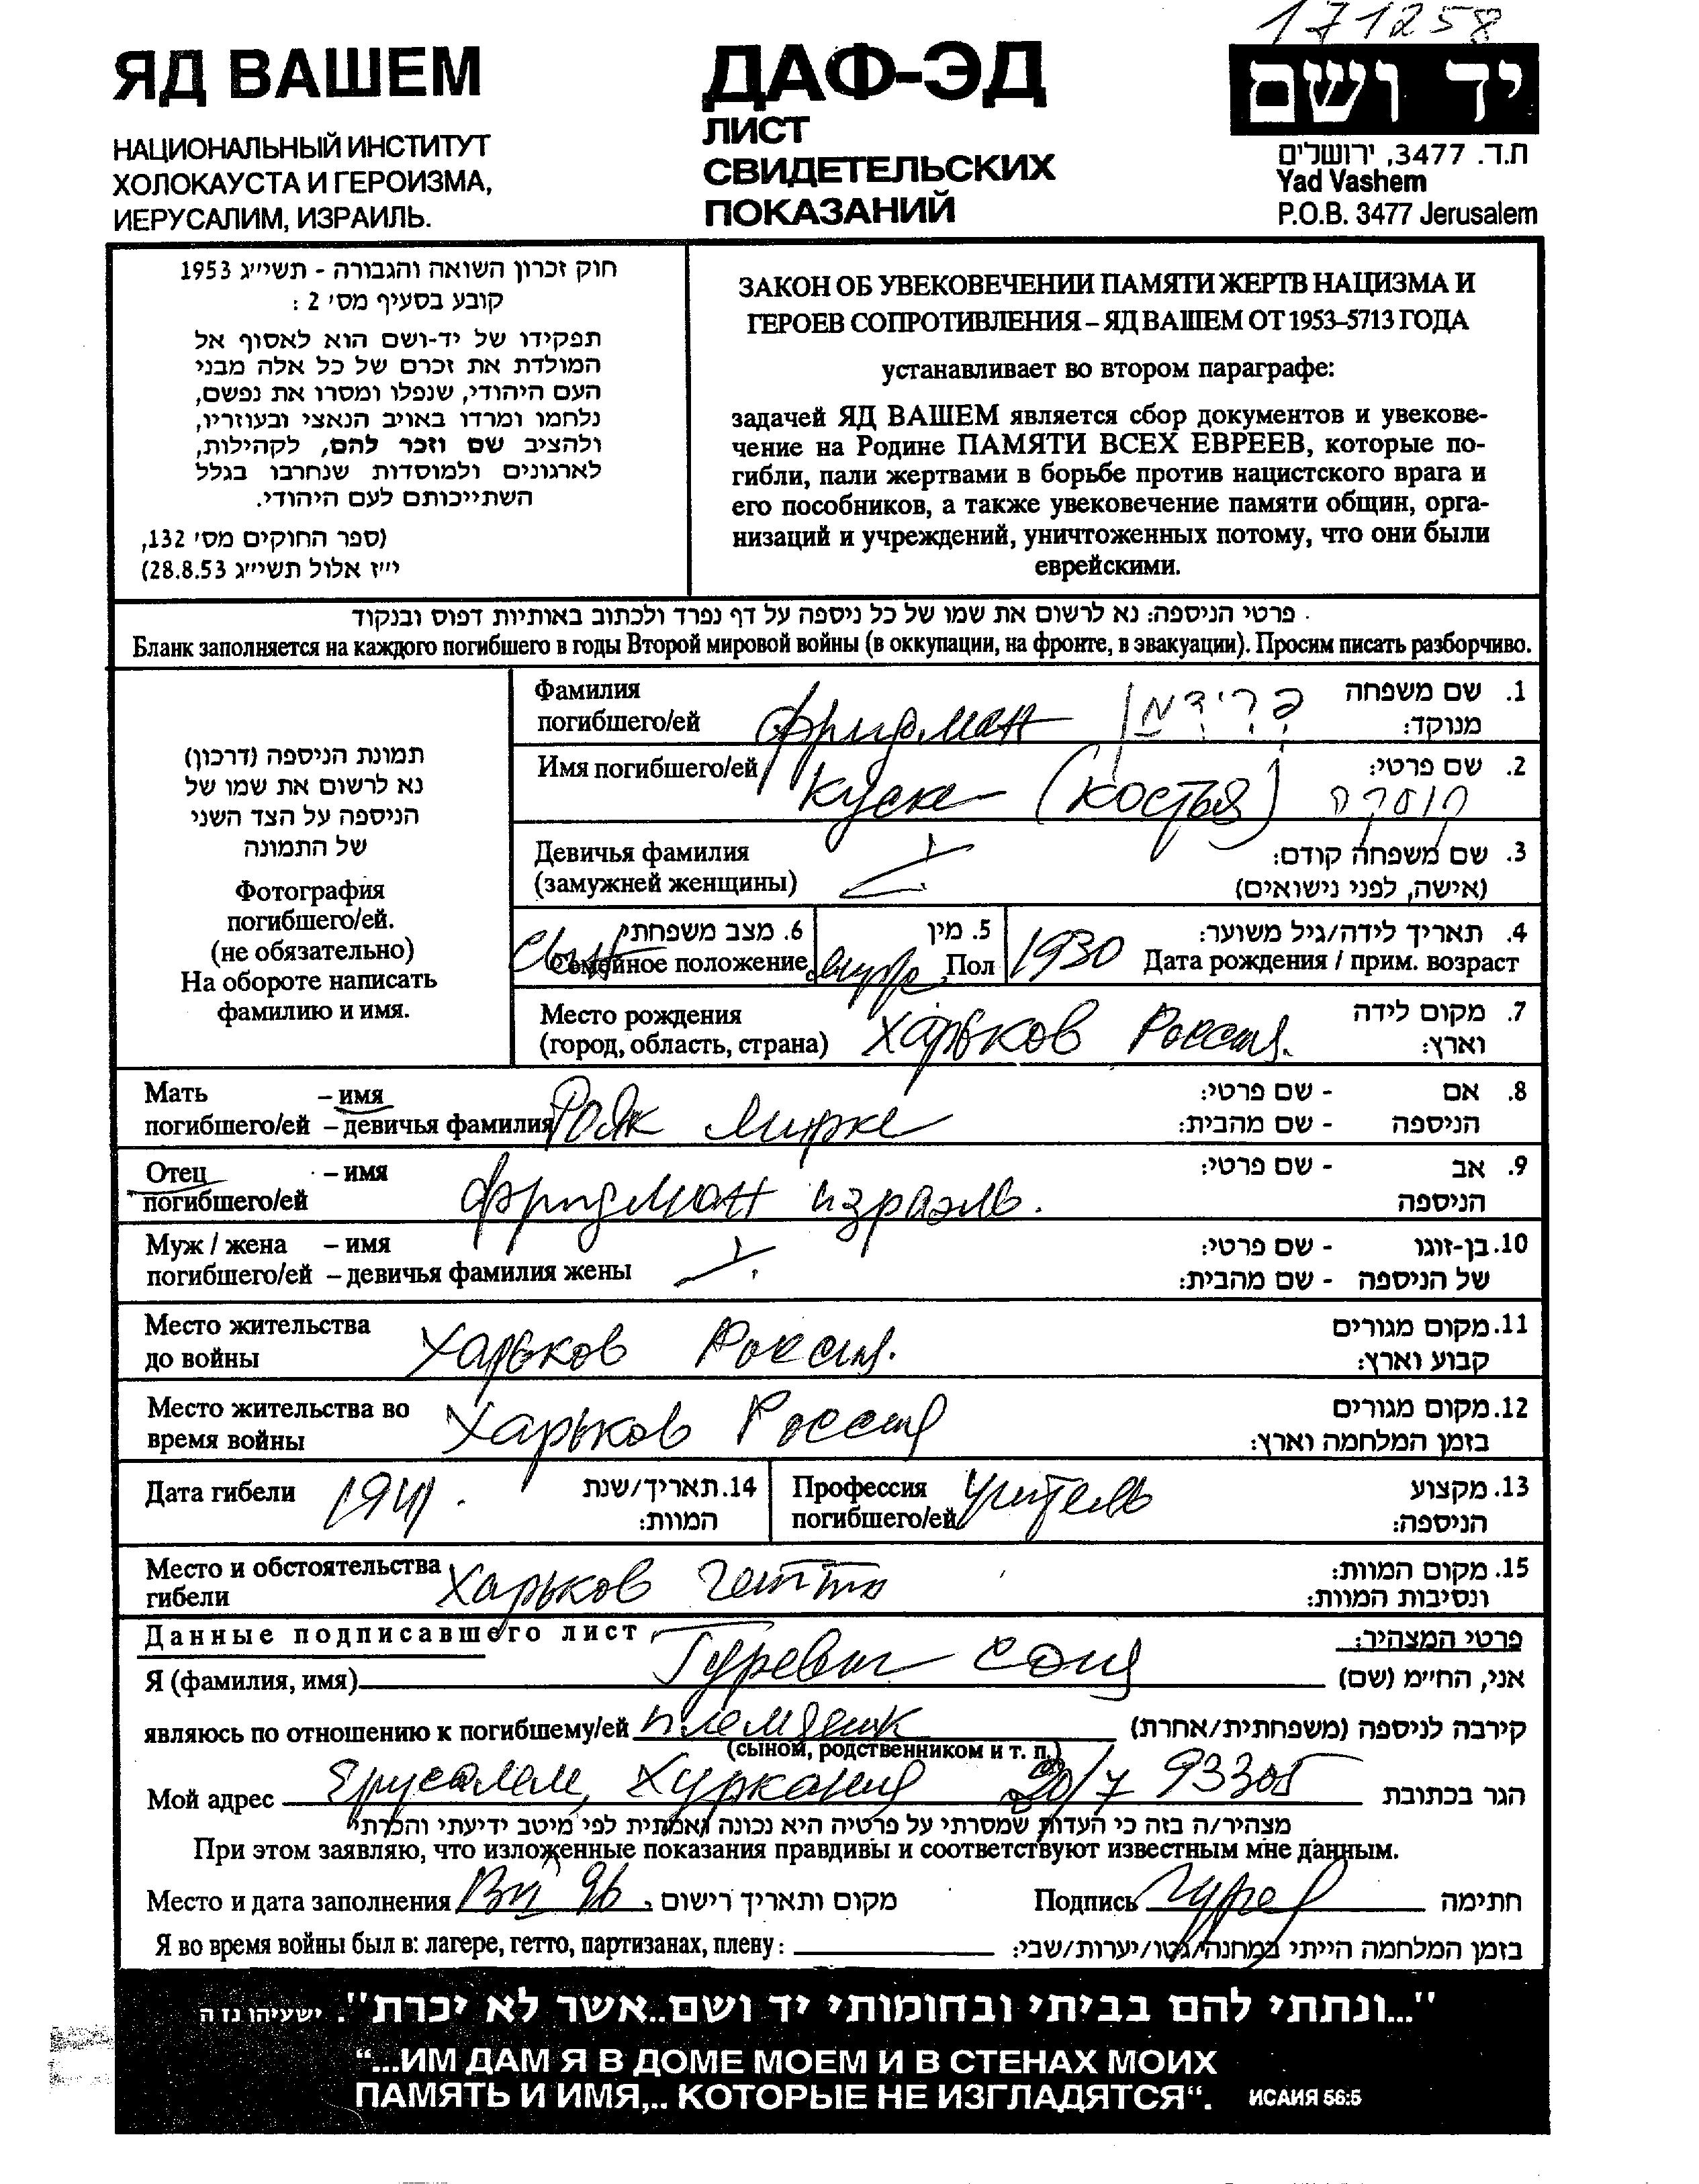 171258
ЯД ВАШЕМ
НАЦИОНАЛЬНЫЙ ИНСТИТУТ
ХОЛОКАУСТА И ГЕРОИЗМА,
ИЕРУСАЛИМ, ИЗРАИЛЬ.
ДАФ-ЭД
ЛИСТ
СВИДЕТЕЛЬСКИХ
ПОКАЗАНИЙ
יד ושם
ת.ד. 3477, ירושלים
Yad Vashem
P.O.B. 3477 Jerusalem
חוק זכרון השואה והגבורה - תשי״ג 1953
קובע בסעיף מס׳ 2 :
תפקידו של יד-ושם הוא לאסוף אל
המולדת את זכרם של כל אלה מבני
העם היהודי, שנפלו ומסרו את נפשם,
נלחמו ומרדו באויב הנאצי ובעוזריו,
ולהציב שם וזכר להם, לקהילות,
לארגונים ולמוסדות שנחרבו בגלל
השתייכותם לעם היהודי.
(ספר החוקים מס׳ 132,
י״ז אלול תשי״ג 28.8.53)
ЗАКОН ОБ УВЕКОВЕЧЕНИИ ПАМЯТИ ЖЕРТВ НАЦИЗМА И
ГЕРОЕВ СОПРОТИВЛЕНИЯ – ЯД ВАШЕМ ОТ 1953–5713 ГОДА
устанавливает во втором параграфе:
задачей ЯД ВАШЕМ является сбор документов и увекове-
чение на Родине ПАМЯТИ ВСЕХ ЕВРЕЕВ, которые по-
гибли, пали жертвами в борьбе против нацистского врага и
его пособников, а также увековечение памяти общин, орга-
низаций и учреждений, уничтоженных потому, что они были
еврейскими.
פרטי הניספה: נא לרשום את שמו של כל ניספה על דף נפרד ולכתוב באותיות דפוס ובנקוד
Бланк заполняется на каждого погибшего в годы Второй мировой войны (в оккупации, на фронте, в эвакуации). Просим писать разборчиво.
תמונת הניספה (דרכון)
נא לרשום את שמו של
הניספה על הצד השני
של התמונה
Фотография
погибшего/ей.
(не обязательно)
На обороте написать
фамилию и имя.
Фамилия
погибшего/ей Фридман פרידמן
1. שם משפחה
מנוקד:
Имя погибшего/ей Куска (Костя) קוסקה
2. שם פרטי:
Девичья фамилия
(замужней женщины)
3. שם משפחה קודם:
(אישה, לפני נישואים)
6. מצב משפחתי
Семейное положение
5. מין
Пол
1930
4. תאריך לידה/גיל משוער:
Дата рождения / прим. возраст
Место рождения
(город, область, страна) Харьков Россия.
7. מקום לידה
וארץ:
Мать – имя
погибшего/ей – девичья фамилия
8. אם - שם פרטי:
הניספה - שם מהבית:
Отец – имя
погибшего/ей Фридман Израэль.
9. אב - שם פרטי:
הניספה
Муж / жена – имя
погибшего/ей – девичья фамилия жены
10. בן-זוגו - שם פרטי:
של הניספה - שם מהבית:
Место жительства
до войны Харьков Россия.
11. מקום מגורים
קבוע וארץ:
Место жительства во
время войны Харьков Россия
12. מקום מגורים
בזמן המלחמה וארץ:
Дата гибели 1941.
14. תאריך/שנת
המוות:
Профессия
погибшего/ей Учитель
13. מקצוע
הניספה:
Место и обстоятельства
гибели Харьков гетто
15. מקום המוות:
ונסיבות המוות:
Данные подписавшего лист
פרטי המצהיר:
Я (фамилия, имя) Гуревич Соня אני, הח״מ (שם)
являюсь по отношению к погибшему/ей племяник קירבה לניספה (משפחתית/אחרת)
(сыном, родственником и т. п.)
Мой адрес Ерусалем, Хуркания 20/7 93305 הגר בכתובת
מצהיר/ה בזה כי העדות שמסרתי על פרטיה היא נכונה ואמתית לפי מיטב ידיעתי והכרתי
При этом заявляю, что изложенные показания правдивы и соответствуют известным мне данным.
Место и дата заполнения מקום ותאריך רישום Подпись חתימה
Я во время войны был в: лагере, гетто, партизанах, плену: בזמן המלחמה הייתי במחנה/גטו/יערות/שבי:
"...ונתתי להם בביתי ובחומותי יד ושם..אשר לא יכרת". ישעיהו נו ה
“...ИМ ДАМ Я В ДОМЕ МОЕМ И В СТЕНАХ МОИХ
ПАМЯТЬ И ИМЯ,.. КОТОРЫЕ НЕ ИЗГЛАДЯТСЯ“. ИСАИЯ 56:5